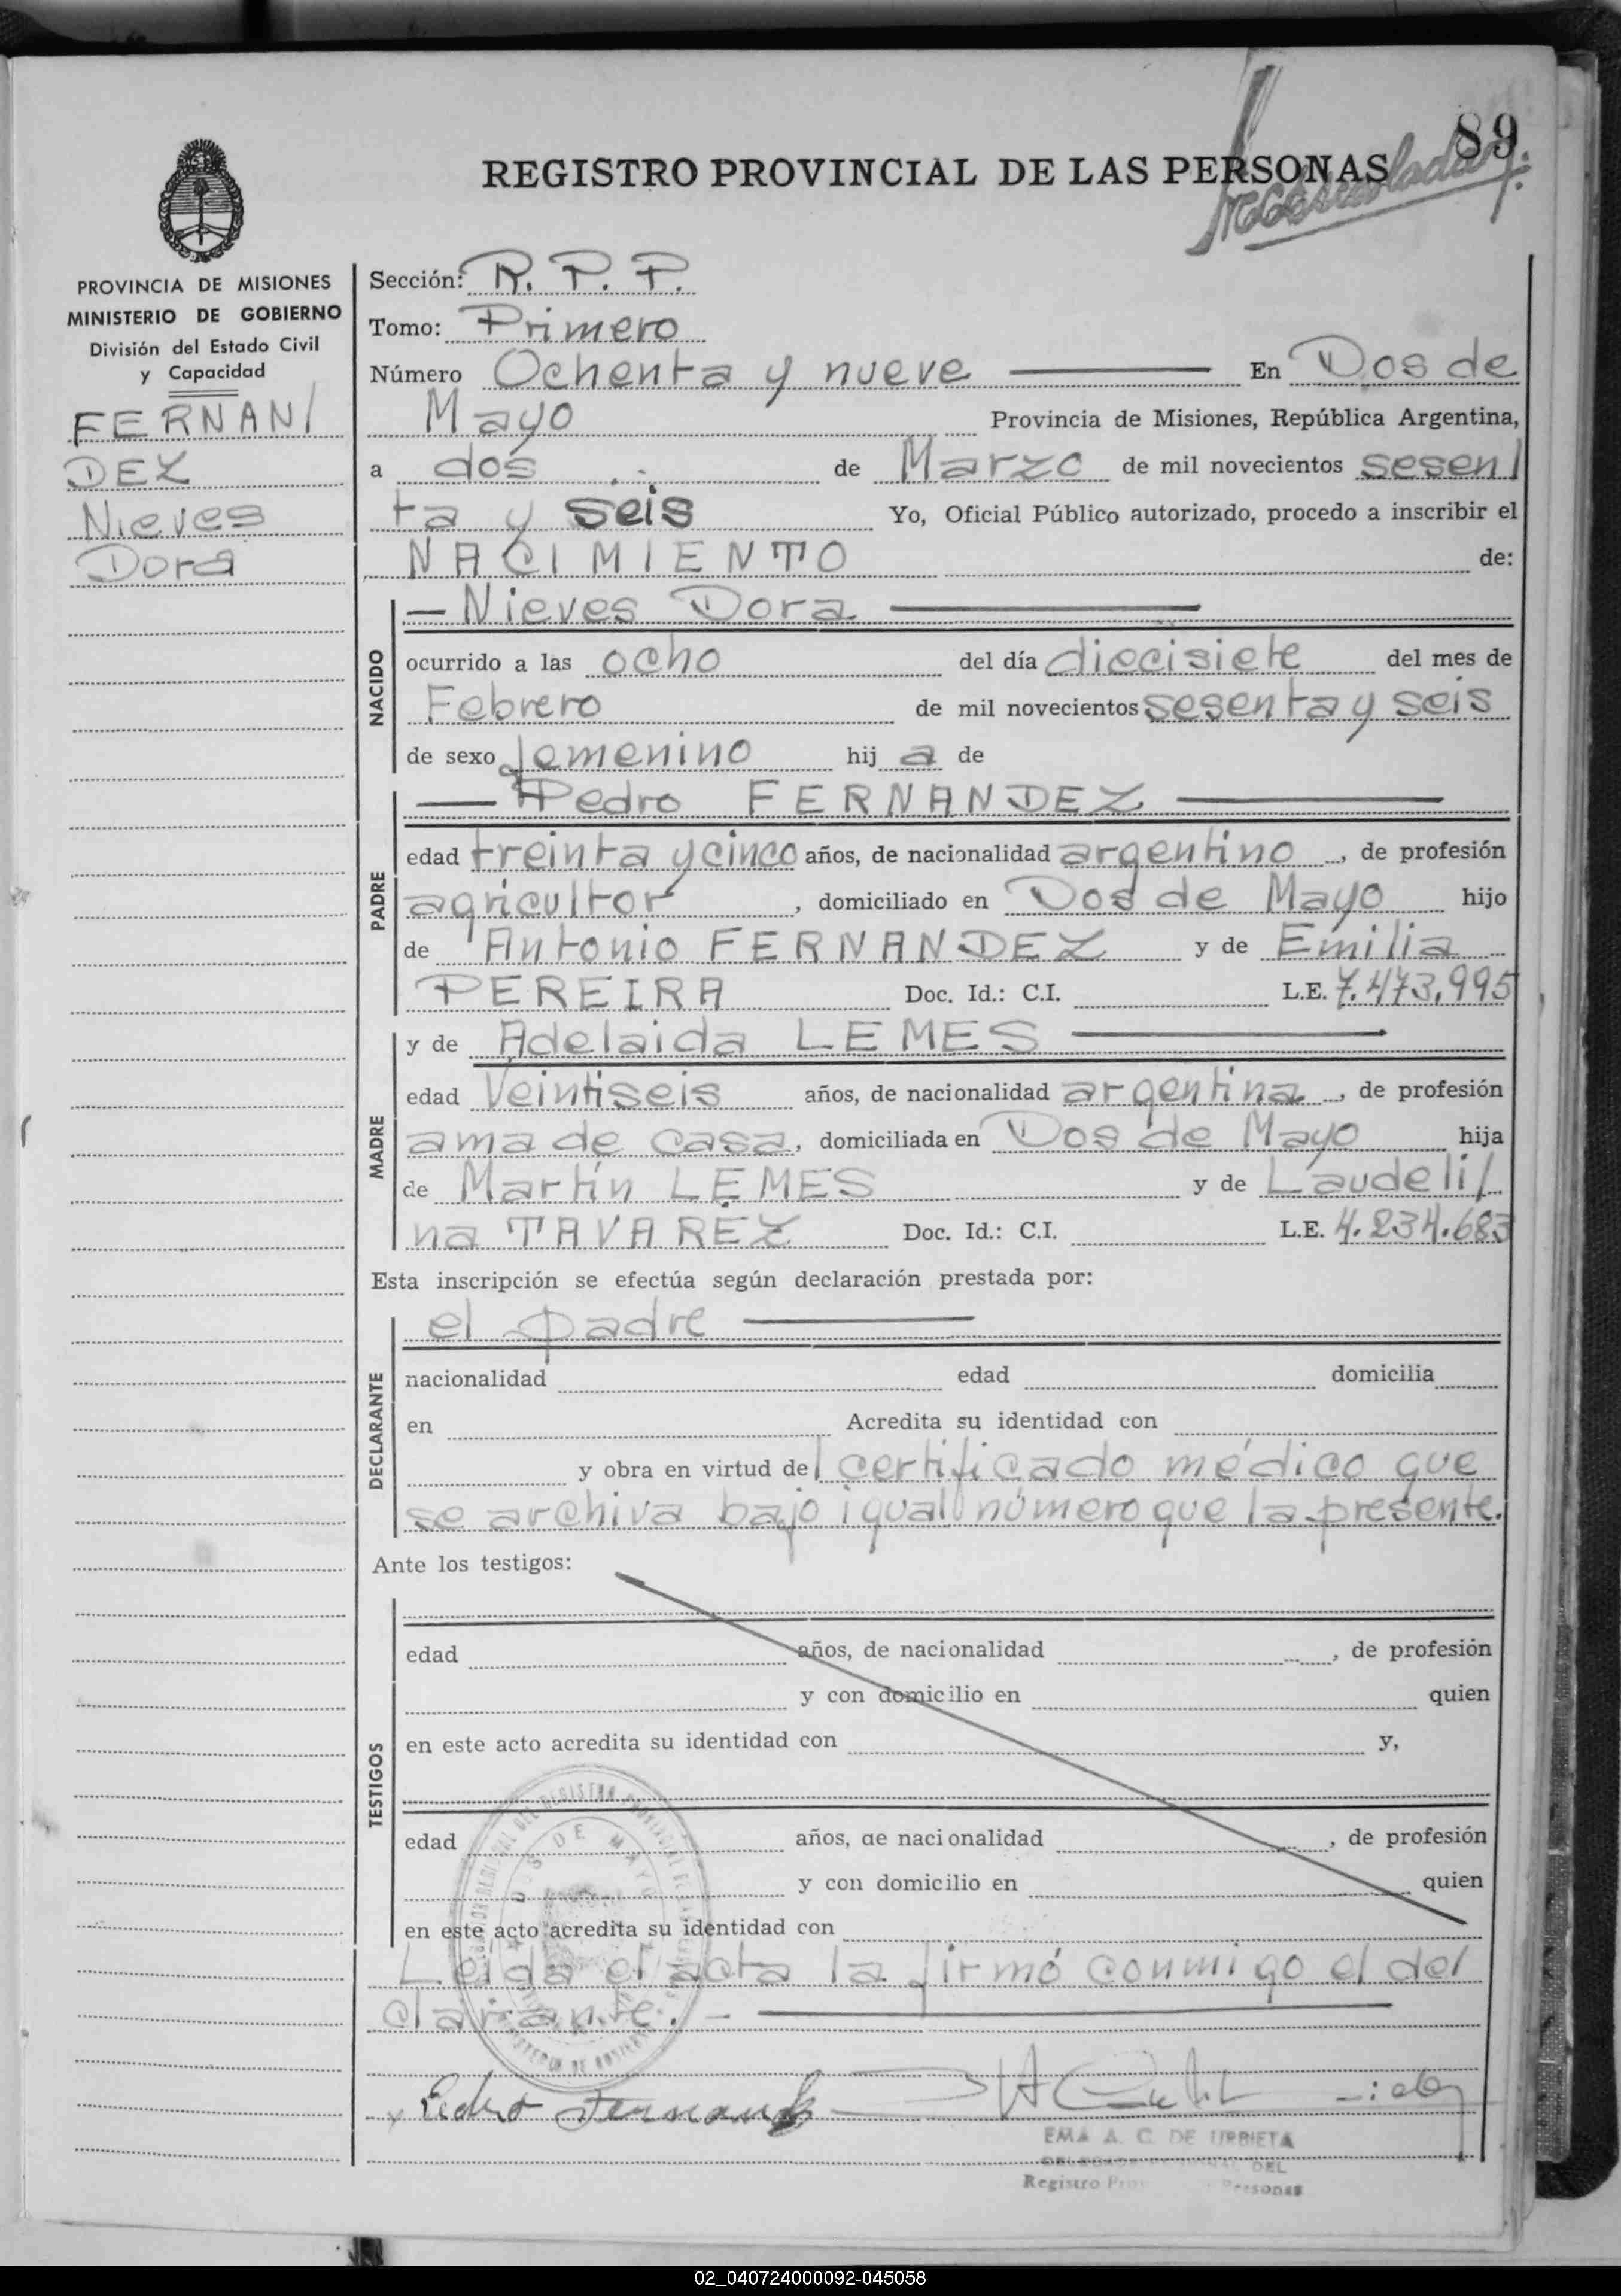 89
REGISTRO PROVINCIAL DE LAS PERSONAS
PROVINCIA DE MISIONES
MINISTERIO DE GOBIERNO
División del Estado Civil
y Capacidad
FERNAN/
DEZ
Nieves
Dora
Sección: R. P. P.
Tomo: Primero
Número Ochenta y nueve En Dos de
Mayo Provincia de Misiones, República Argentina,
a dos de Marzo de mil novecientos sesen/
ta y seis Yo, Oficial Público autorizado, procedo a inscribir el
NACIMIENTO de:
NACIDO
— Nieves Dora —
ocurrido a las ocho del día diecisiete del mes de
Febrero de mil novecientos sesenta y seis
de sexo femenino hij a de
PADRE
— Pedro FERNANDEZ —
edad treinta y cinco años, de nacionalidad argentino, de profesión
agricultor, domiciliado en Dos de Mayo hijo
de Antonio FERNANDEZ y de Emilia
PEREIRA Doc. Id.: C.I. L.E. 7.473.995
MADRE
y de Adelaida LEMES —
edad Veintiseis años, de nacionalidad argentina, de profesión
ama de casa, domiciliada en Dos de Mayo hija
de Martín LEMES y de Laudeli/
na TAVAREZ Doc. Id.: C.I. L.E. 4.234.683
Esta inscripción se efectúa según declaración prestada por:
DECLARANTE
el padre —
nacionalidad edad domicilia
en Acredita su identidad con
y obra en virtud del certificado médico que
se archiva bajo igual número que la presente.
Ante los testigos:
TESTIGOS
edad años, de nacionalidad , de profesión
y con domicilio en quien
en este acto acredita su identidad con y,
edad años, de nacionalidad , de profesión
y con domicilio en quien
en este acto acredita su identidad con
Leída el acta la firmó conmigo el de/
clarante. - —
DOS DE MAYO
x Pedro Fernandez
EMA A. C. DE URBIETA
DEL
Registro Personas
02_040724000092-045058